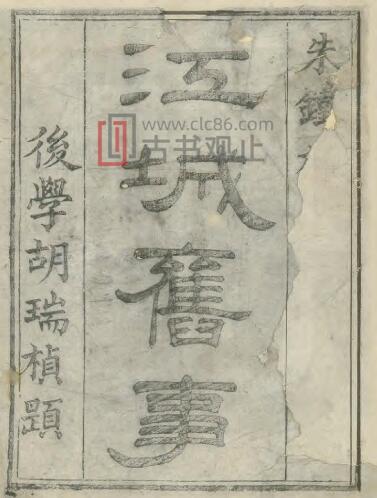 朱鐘
江城舊事
後學胡瑞楨題
www.clc86.com
古书观止